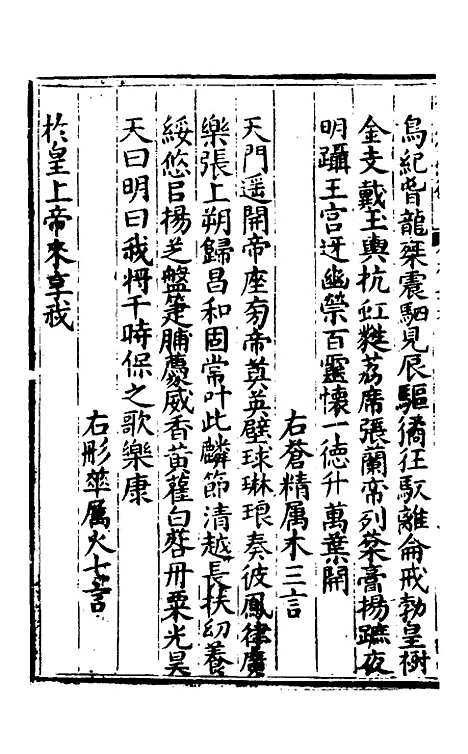 鳥紀嘗龍㮚震駟見辰驅䘏狂馭離侖戒勃皇樹
金支戴玉輿抗虹㲲荔席張蘭帝列棻膏揚蹠夜
明躡王宮迓幽禜百靈懷一德升萬葉開
右蒼精厲木三言
天門遥開帝座䓑帝奠英壁球琳琅奏彼鳳律廣
樂張上朔歸昌和固常叶此麟節清越長扶幼養
綏悠㠯揚芝盤筵脯慶威香黄雚白砮丹粟光昊
天曰明曰我将千時保之歌樂康
右彤華厲火七言
於皇上帝來享我